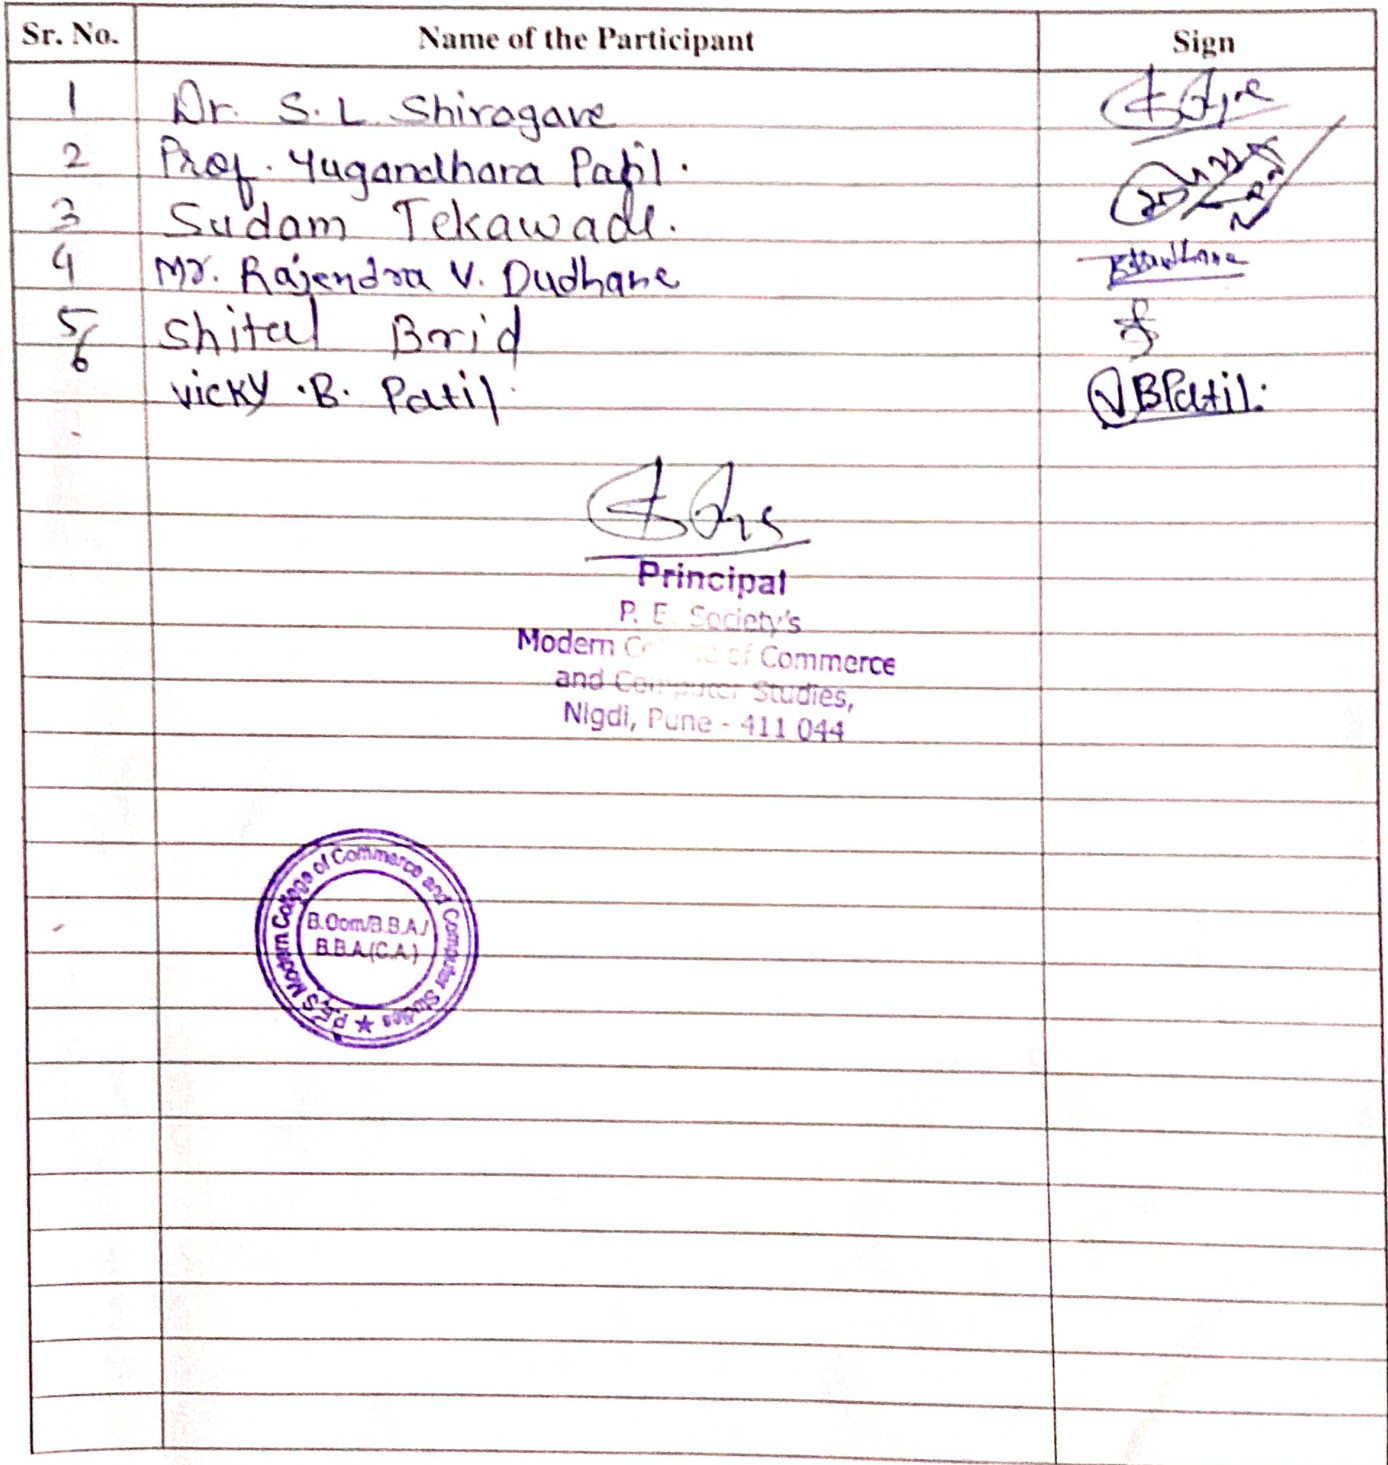 Sr. No. Name of the Participant Sign
1 Dr. S. L. Shiragave
2 Prof. Yugandhara Patil.
3 Sudam Tekawade.
4 Mr. Rajendra V. Dudhane
5 Shital Brid
6
Vicky .B. Patil. VBPatil.
Principal
P. E. Society's
Modern College of Commerce
and Computer Studies,
Nigdi, Pune - 411 044
P.E.S Modern College of Commerce and Computer Studies ★
B.Com/B.B.A/
B.B.A.(C.A.)